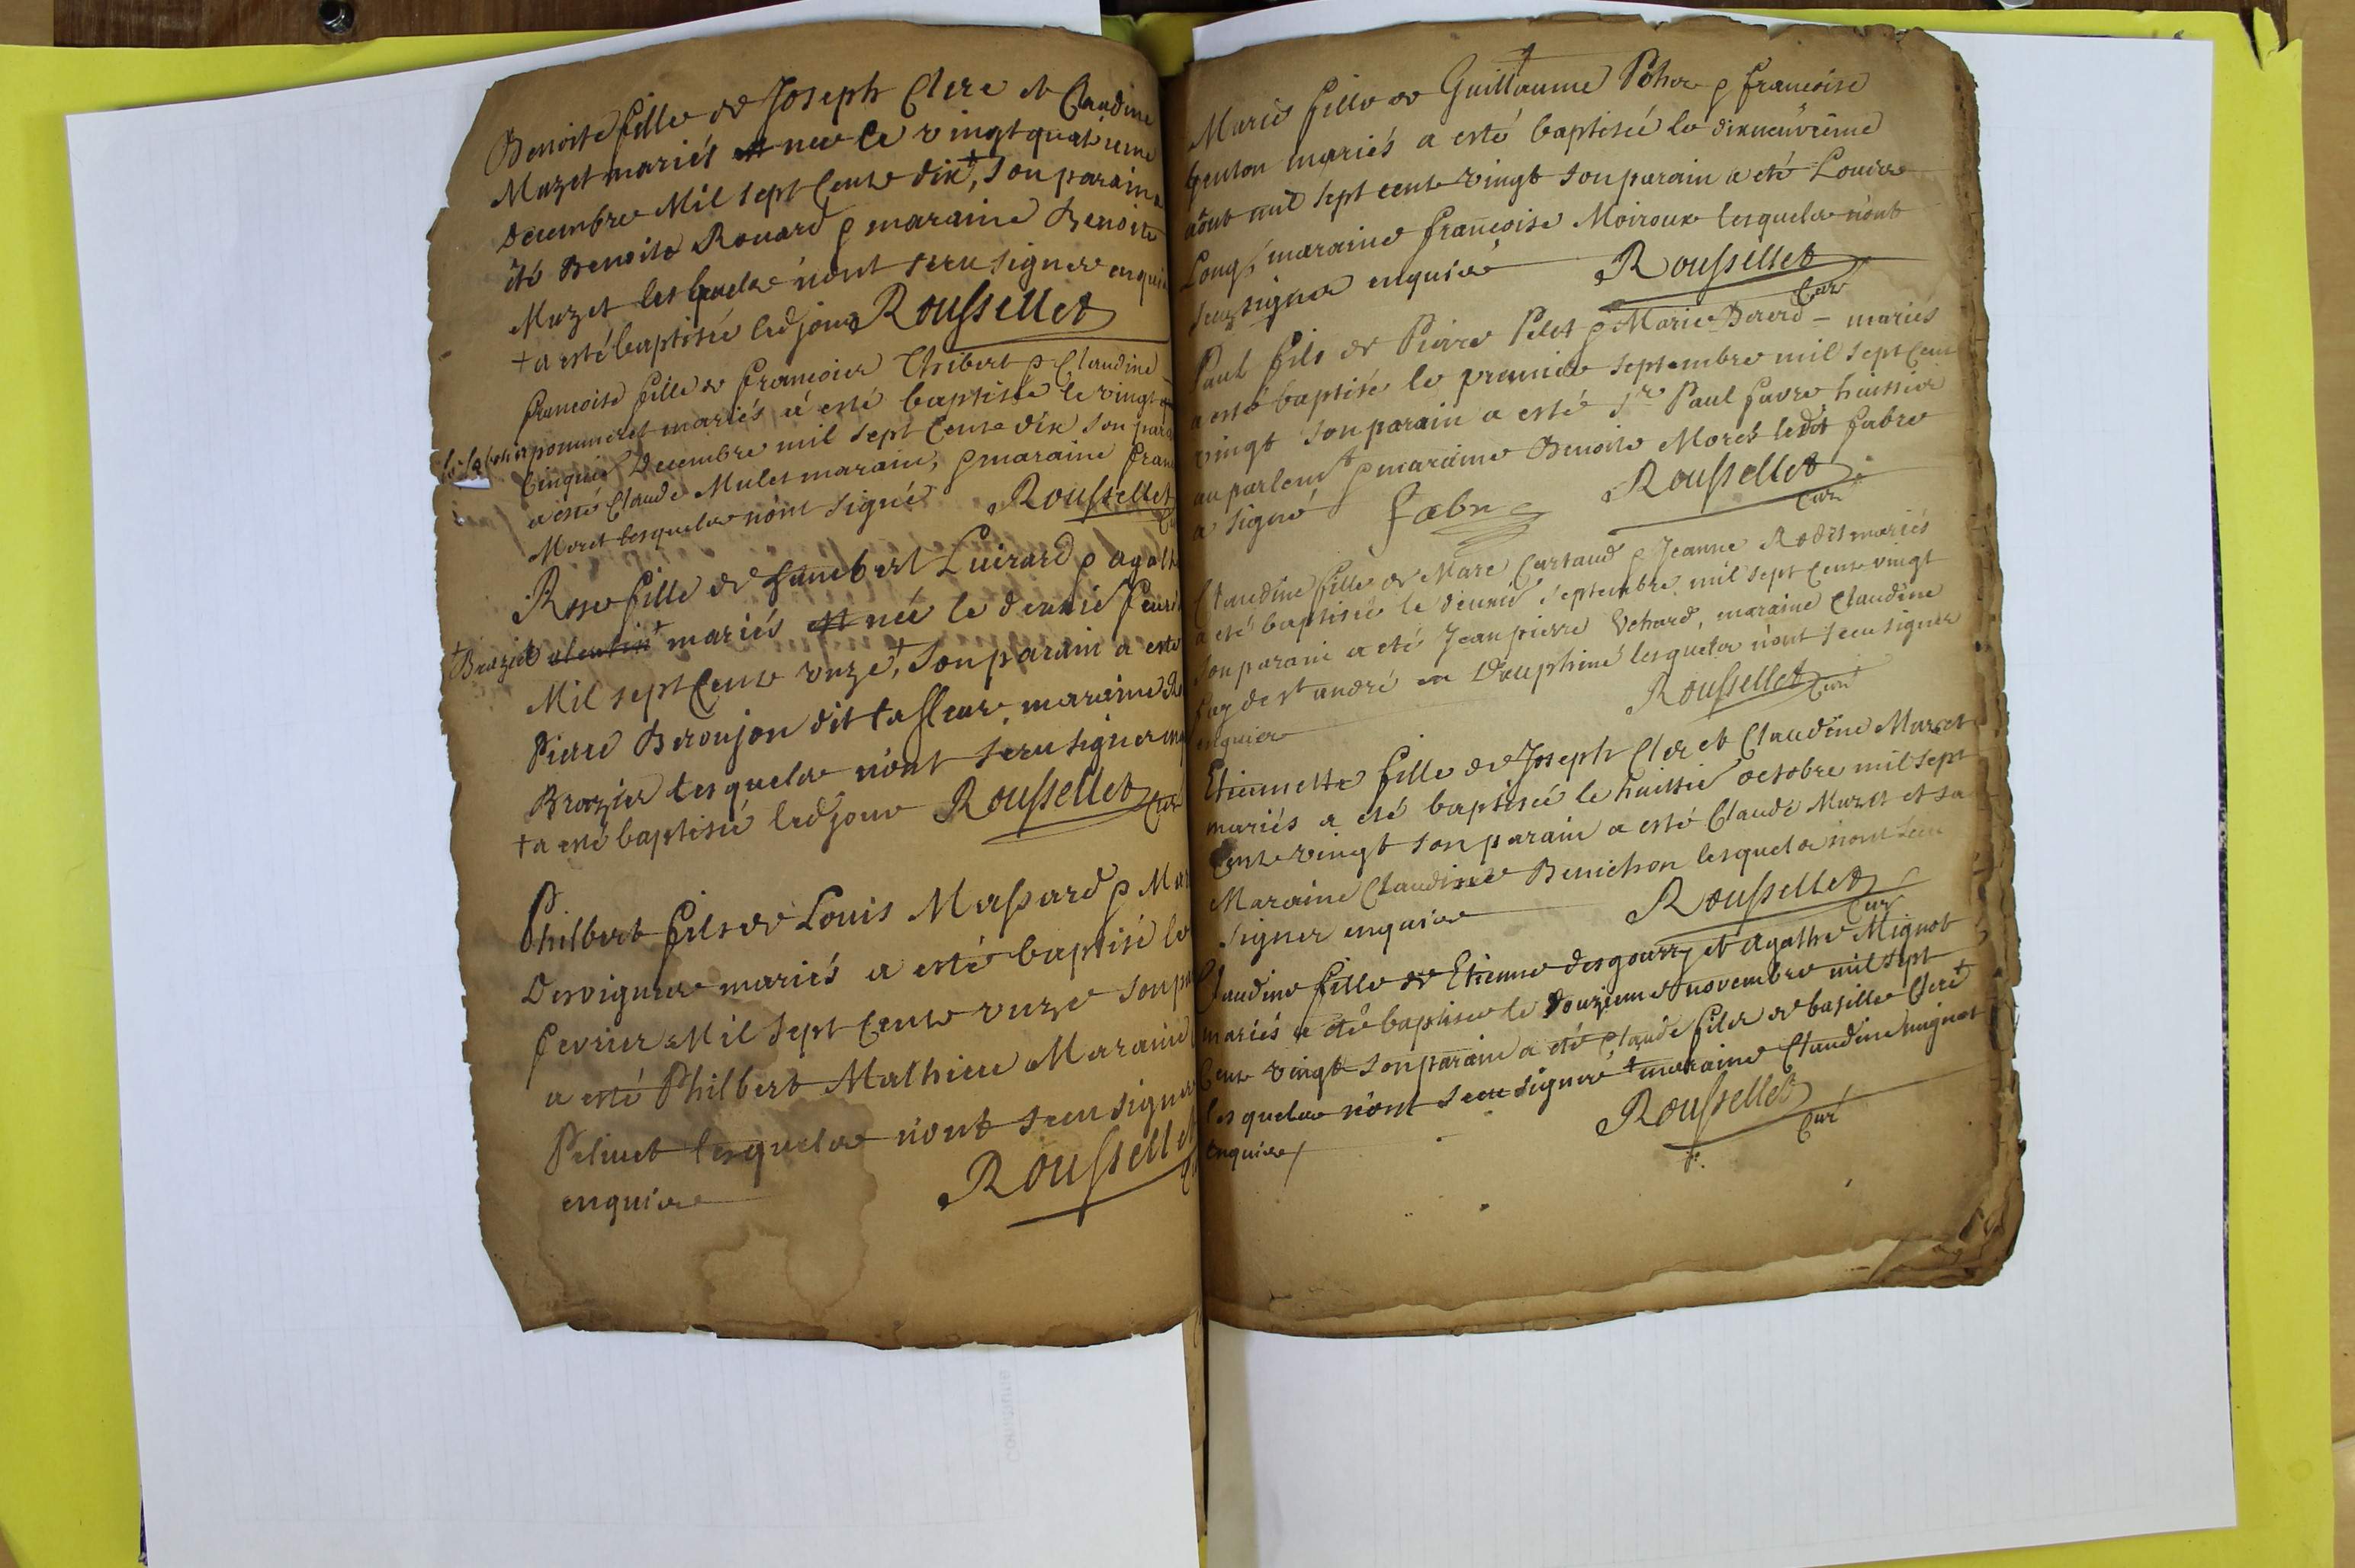 Benoite fille de Joseph Clerc et Claudine
Muzet mariés née le vingtquatrieme
Decembre Mil sept Cents dix†, son parain a
été Benoite Rouard & maraine Benoite
Muzet lesquels n'ont sceu signer enquis
+ a esté baptisée led jour Rousselet
francoise fille de francois Thibert & Claudine
pommeret mariés a esté baptisée le vingt
Cinquie Decembre mil sept Cents dix son para
a esté Claude Mulet marain, & maraine fran
Moret lesquels n'ont signé Rousselet
Cu
Rose fille de humbert Luirard & agath
+ Brazier mariés née le dernié feuri
Mil sept Cents unze†, son parain a esté
Pierre Beroujon dit lafleur, maraine
Brazier lesquels n'ont sceu signer enq
+ a esté baptisée led jour Rousselet Cur
Philbert fils de Louis Massard & Mar
Desvignes mariés a esté baptisé le
fevrier Mil sept Cents unze son pa
a esté Philbert Mathieu Maraine
Pelinet lesquels n'ont sceu signer
enquis Rousselet
Marie fille de Guillaume & francoise
genton mariés a esté baptiséé le dixneuvieme
aôut mil sept cents vingt son parain a eté Louis
Long, maraine françoise Moiroux lesquels n'ont
sceu signer enquis Rousselet
Cur
Paul fils de Pierre Pelet & Marie Dererd - mariés
a esté baptisé le premier septembre mil sept Cent
vingt son parain a esté Sr Paul favre huissier
au parlemt & maraine Benoite Morel ledit fabre
a signé fabre Rousselet
Cur
Claudine fille de Marc Cartaud & Jeanne Rodet mariés
a eté baptisée le septembre mil sept Cents vingt
son parain a eté Jean pierre Vehard, maraine Claudine
fay de st andré en Dauphiné lesquels n'ont sceu signer
enquis Rousselet Cur
Etiennette fille de Joseph Clerc et Claudine Muzet
mariés a eté baptisée le huitié octobre mil sept
Cents vingt son parain a esté Claude Muzet et sa
Maraine Claudine Benichon lesquels n'ont sceu
signer enquis Rousselet
Cur
Claudine fille de Etienne desgoutty et Agathe Mignot
mariés a eté baptisée le Douzieme novembre mil sept
Cens vingt son parain a eté Claude fils de basille Clerc†
lesquels n'ont sceu signer + maraine Claudine mignot
enquis/ Rousselet
Cur